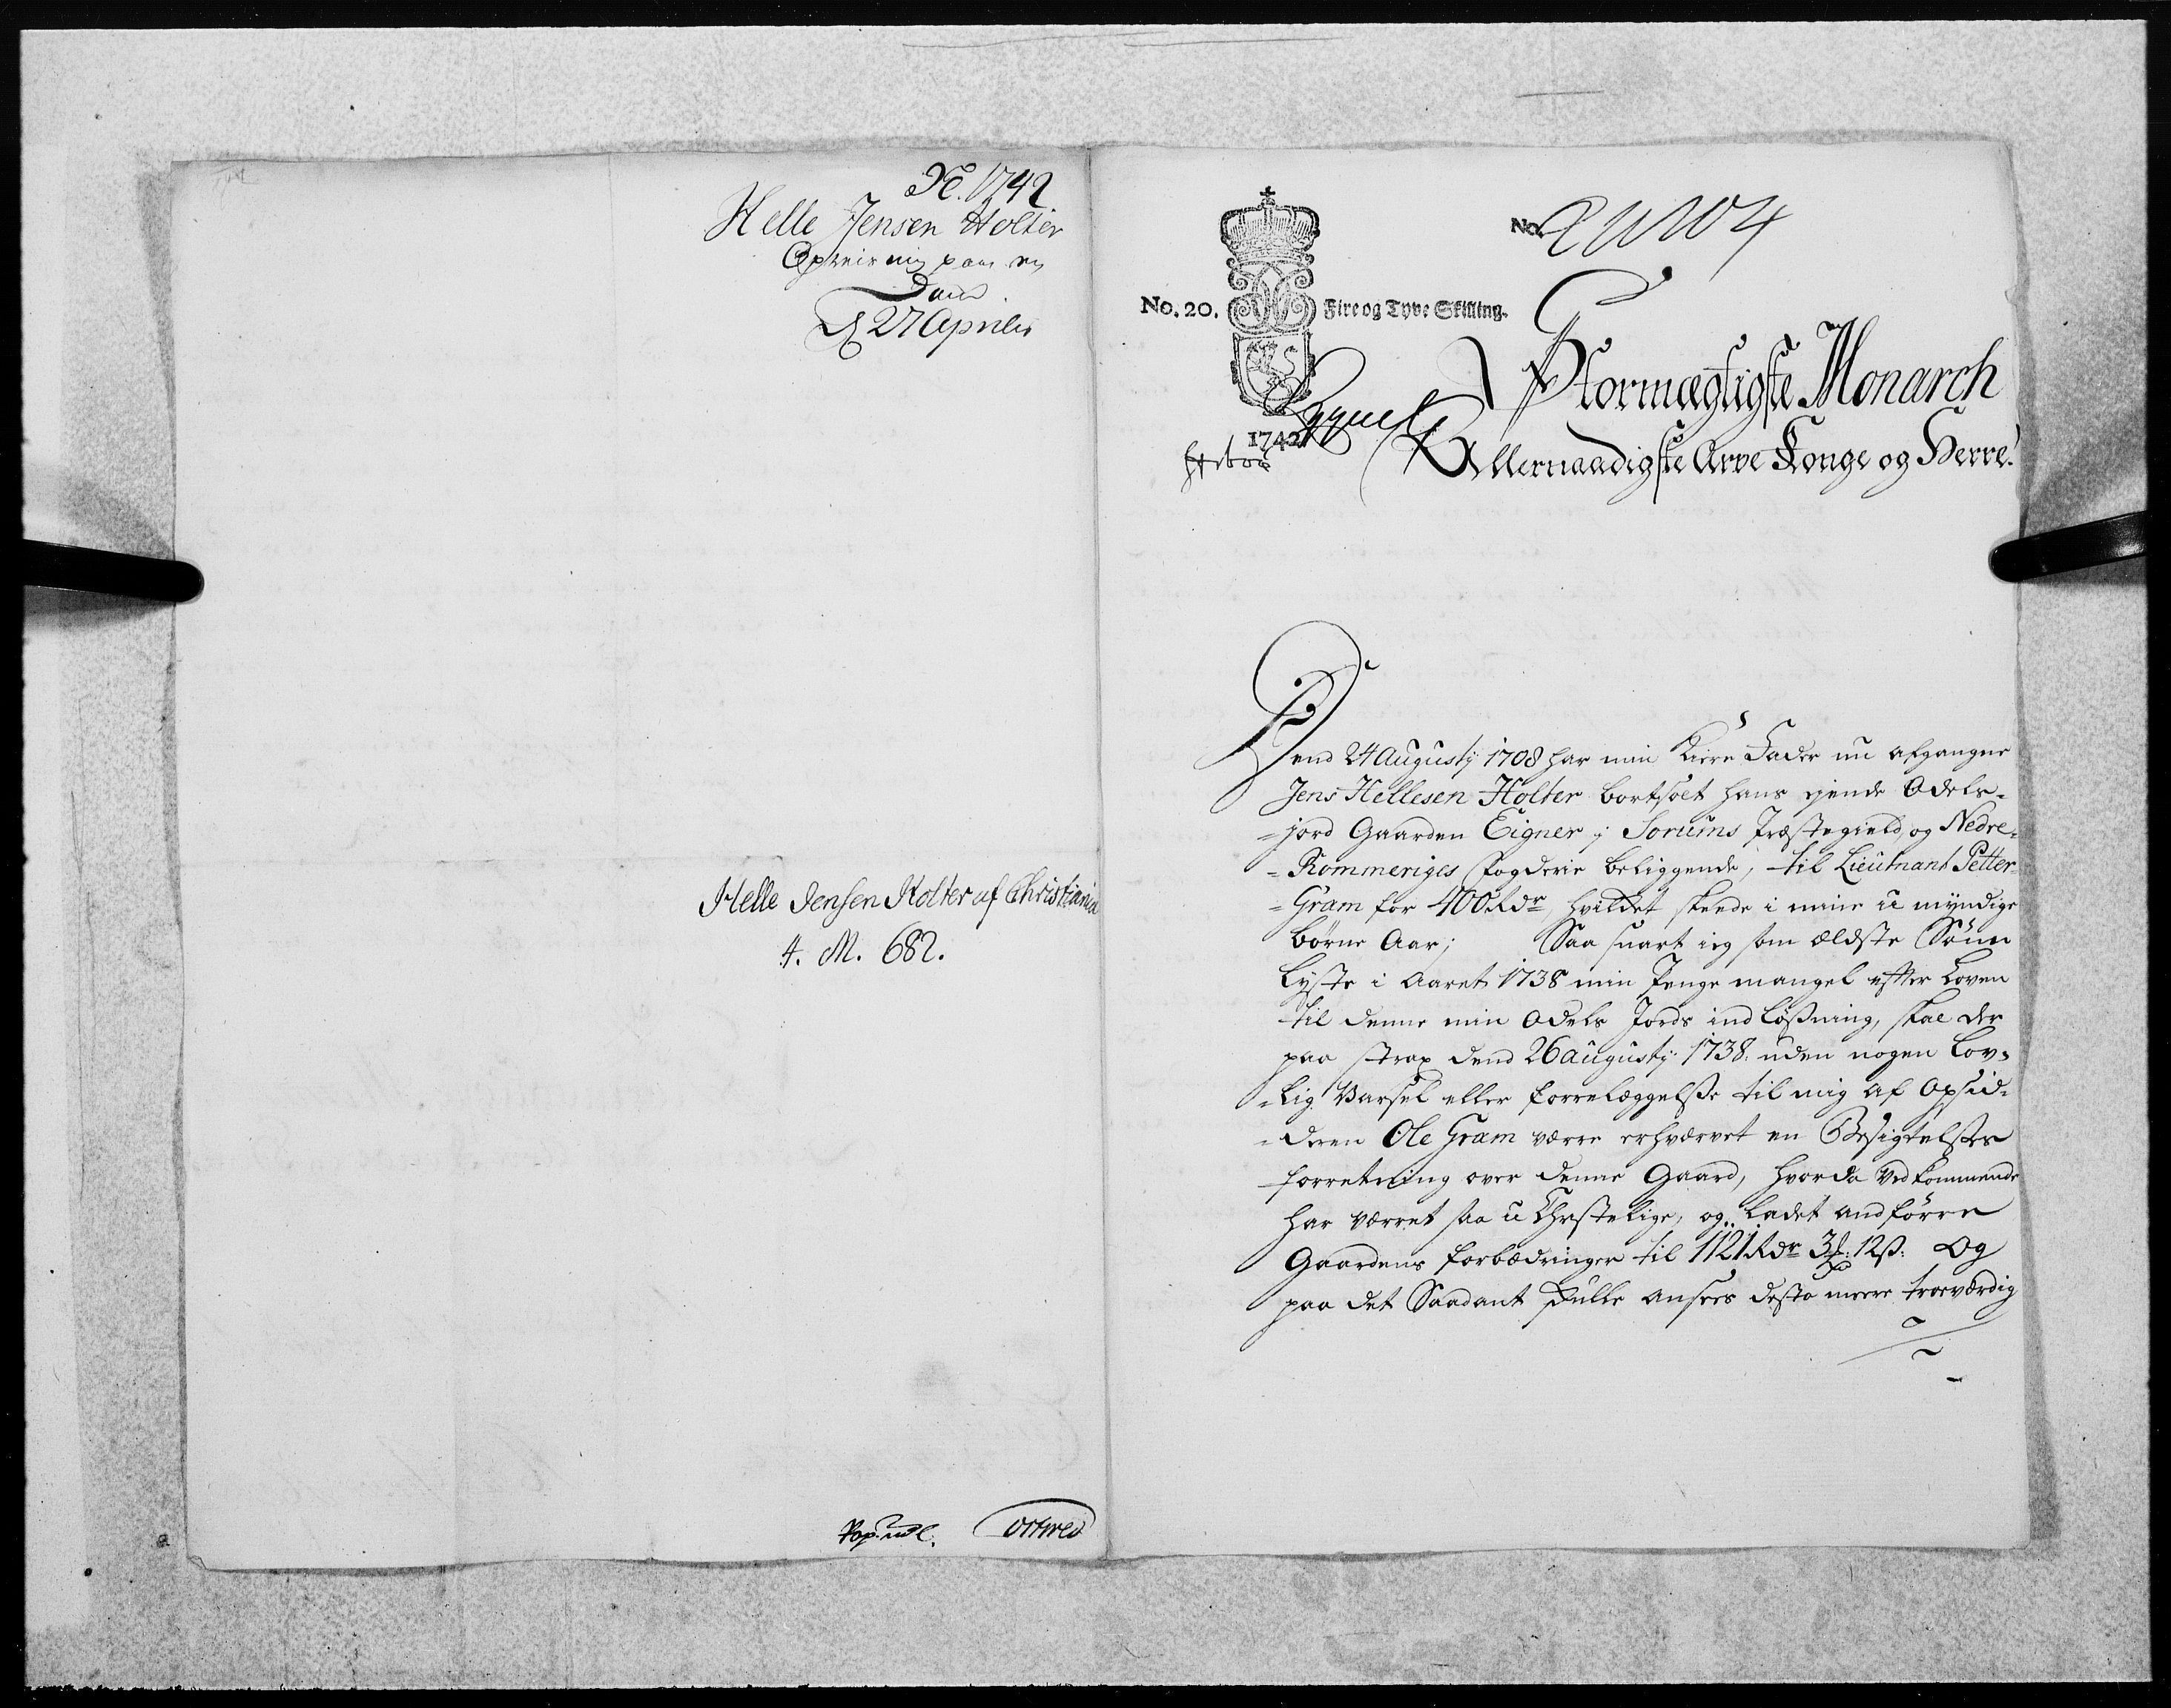 1742
Helle Jensen Holter
Opreisning paa en
Dom
d 27 Aprilis
Helle Jensen Holter af Christiania
4. M. 682.
No.
No. 20. Fire og Tyve Skilling.
1742
Stormægtigste Monarch
Allernaadigste Arve Konge og Herre!
Dend 24 Augusty 1708 har min Kiere Fader nu afgangne
Jens Hellesen Holter bortsolt hans ejende Odels-
-jord Gaarden Eigner j Sorums Præstegield og Nedre-
-Rommeriges fogderie beliggende, til Lieutnant Petter
-Gram for 400 Rdr, hvildet skeede i mine u myndige
børne Aar; Saa snart ieg som ældste Sønn
lyste i Aaret 1738 min Penge mangel efter Loven
til denne min Odels Jords indløsning, skal der
paa strax dend 26 augusty 1738: uden nogen Lov-
-lig Varsel eller forrelæggelse til mig af Opsid-
-deren Ole Gram værre erhværvet en Besigtelses
forretning over denne Gaard, hvorda Vedkommende
har værret saa u Christelige, og ladet andførre
Gaardens forbædringer til 1121 Rdr 3 12 ß: Og
paa det Saadant skulle ansees desto meere troeværdig